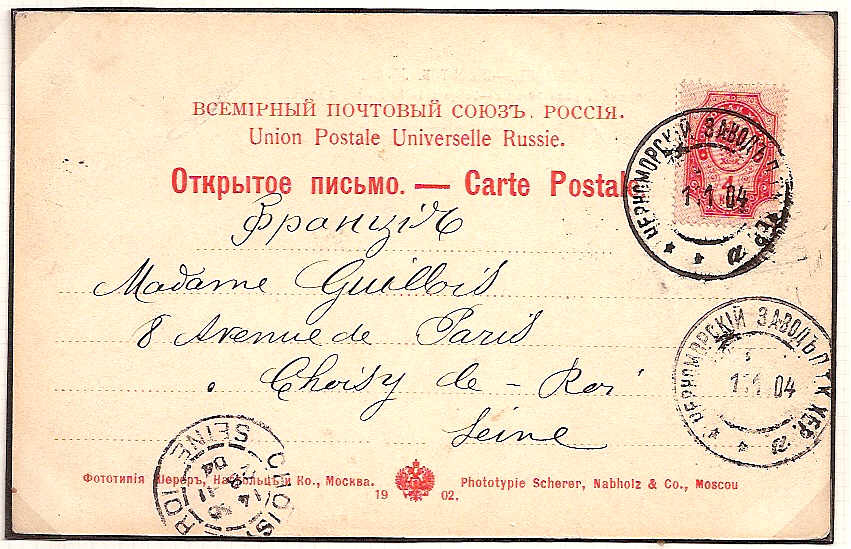 ВСЕМІРНЫЙ ПОЧТОВЫЙ СОЮЗЪ. РОССІЯ.
Union Postale Universelle Russie.
Открытое письмо. — Carte Postale
ЧЕРНОМОРСКІЙ ЗАВОДЪ П.Т.К. ХЕР. Г.
1 1 04
Франціѣ
Madame Guillois
8 Avenue de Paris
Choisy de-Roi
Seine
ЧЕРНОМОРСКІЙ ЗАВОДЪ П.Т.К. ХЕР.
1 1 04
CHOISY ROI
SEINE
04
Фототипія Шереръ, Набгольцъ и Ко., Москва.
Phototypie Scherer, Nabholz & Co., Moscou
19 02.